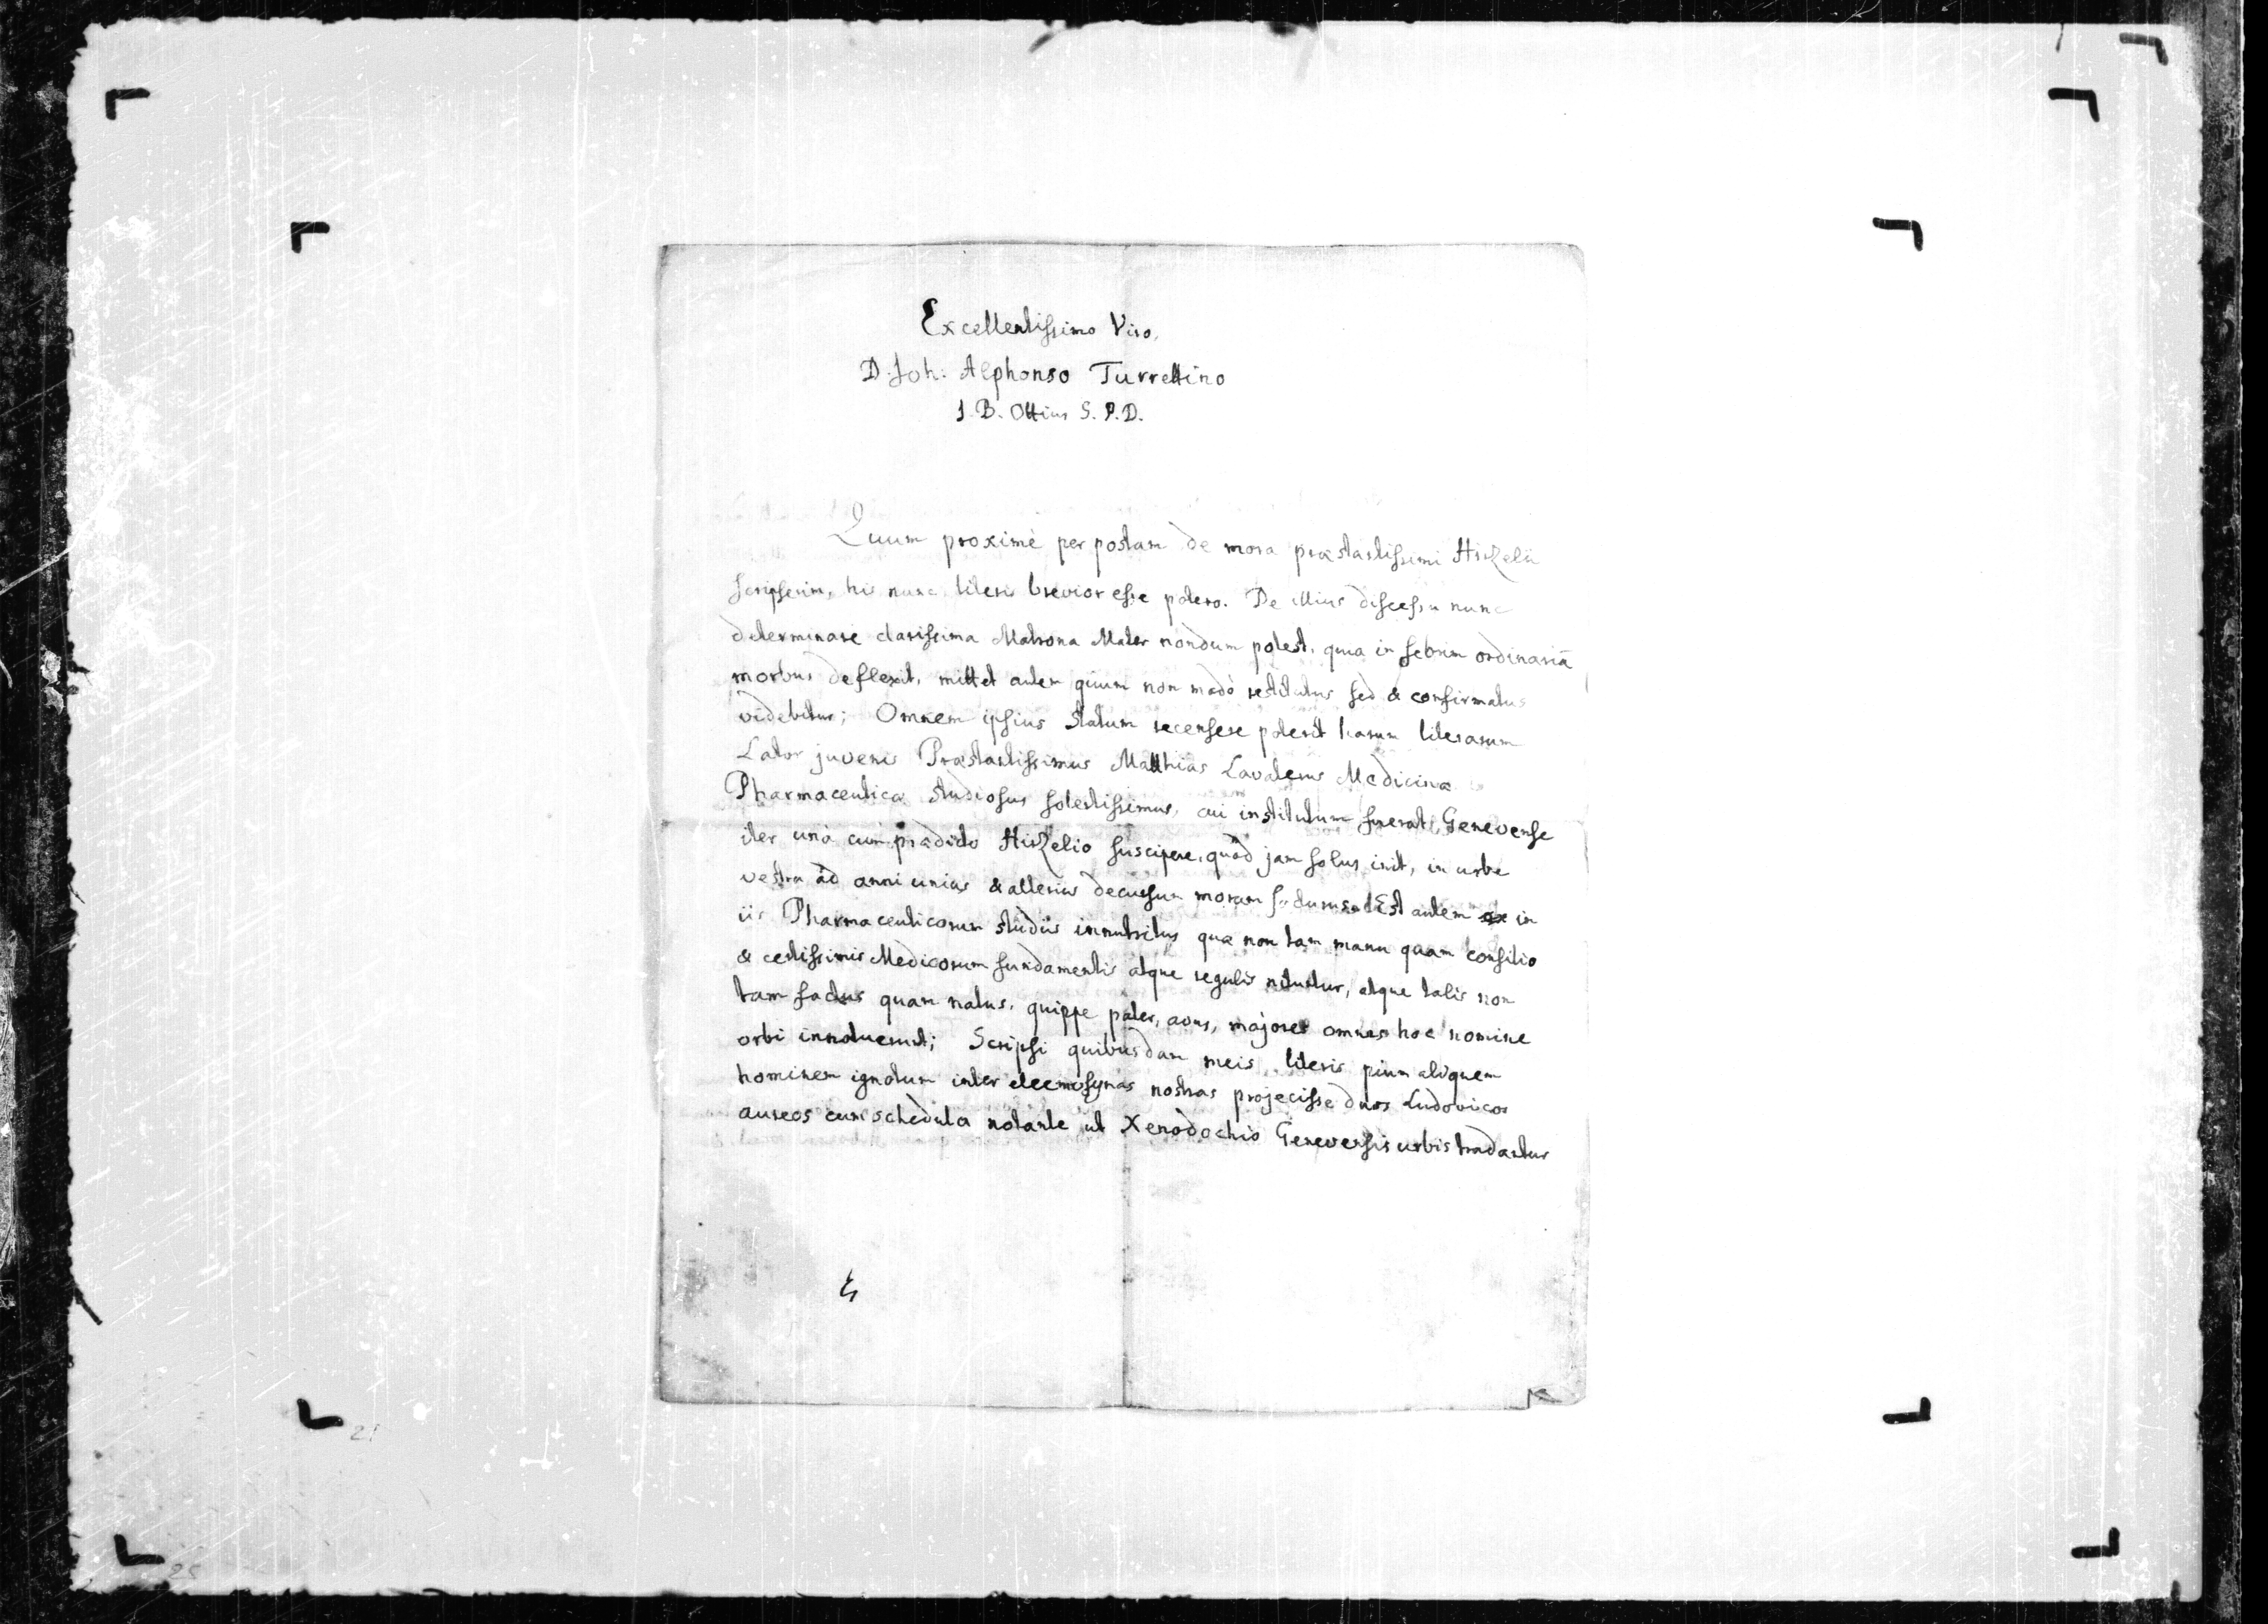 Excellentissimo Viro,
D. Joh. Alphonso Turrettino
J. B. Ottius S. P. D.
Quum proximè per postam de mora præstantissimi Hirzelii
scripserim, his nunc literis brevior esse potero. De illius discessu nunc
determinare clarissima Matrona Mater nondum potest, quia in febrim ordinariã
morbus deflexit, mittet autem quum non modò restitutus sed & confirmatus
videbitur; Omnem ipsius statum recensere poterit harum literarum
Lator juvenis Præstantissimus Matthias Lavaterus Medicinæ
Pharmaceuticæ studiosus solertissimus, cui institutum fuerat, Genevense
iter unà cum prædicto Hirzelio suscipere, quod jam solus init, in urbe
vestra ad anni unius & alterius decursum moram facturus. Est autem in
iis Pharmaceuticorum studiis innutritus quæ non tam manu quam consilio
& certissimis Medicorum fundamentis atque regulis nituntur, atque talis non
tam factus quam natus, quippe pater, avus, majores omnes hoc nomine
orbi innotuerunt; Scripsi quibusdam meis literis pium aliquem
hominem ignotum inter eleemosynas nostras projecisse duos Ludovicos
aureos cum schedula notante ut Xenodochio Genevensis urbis tradantur
21
25